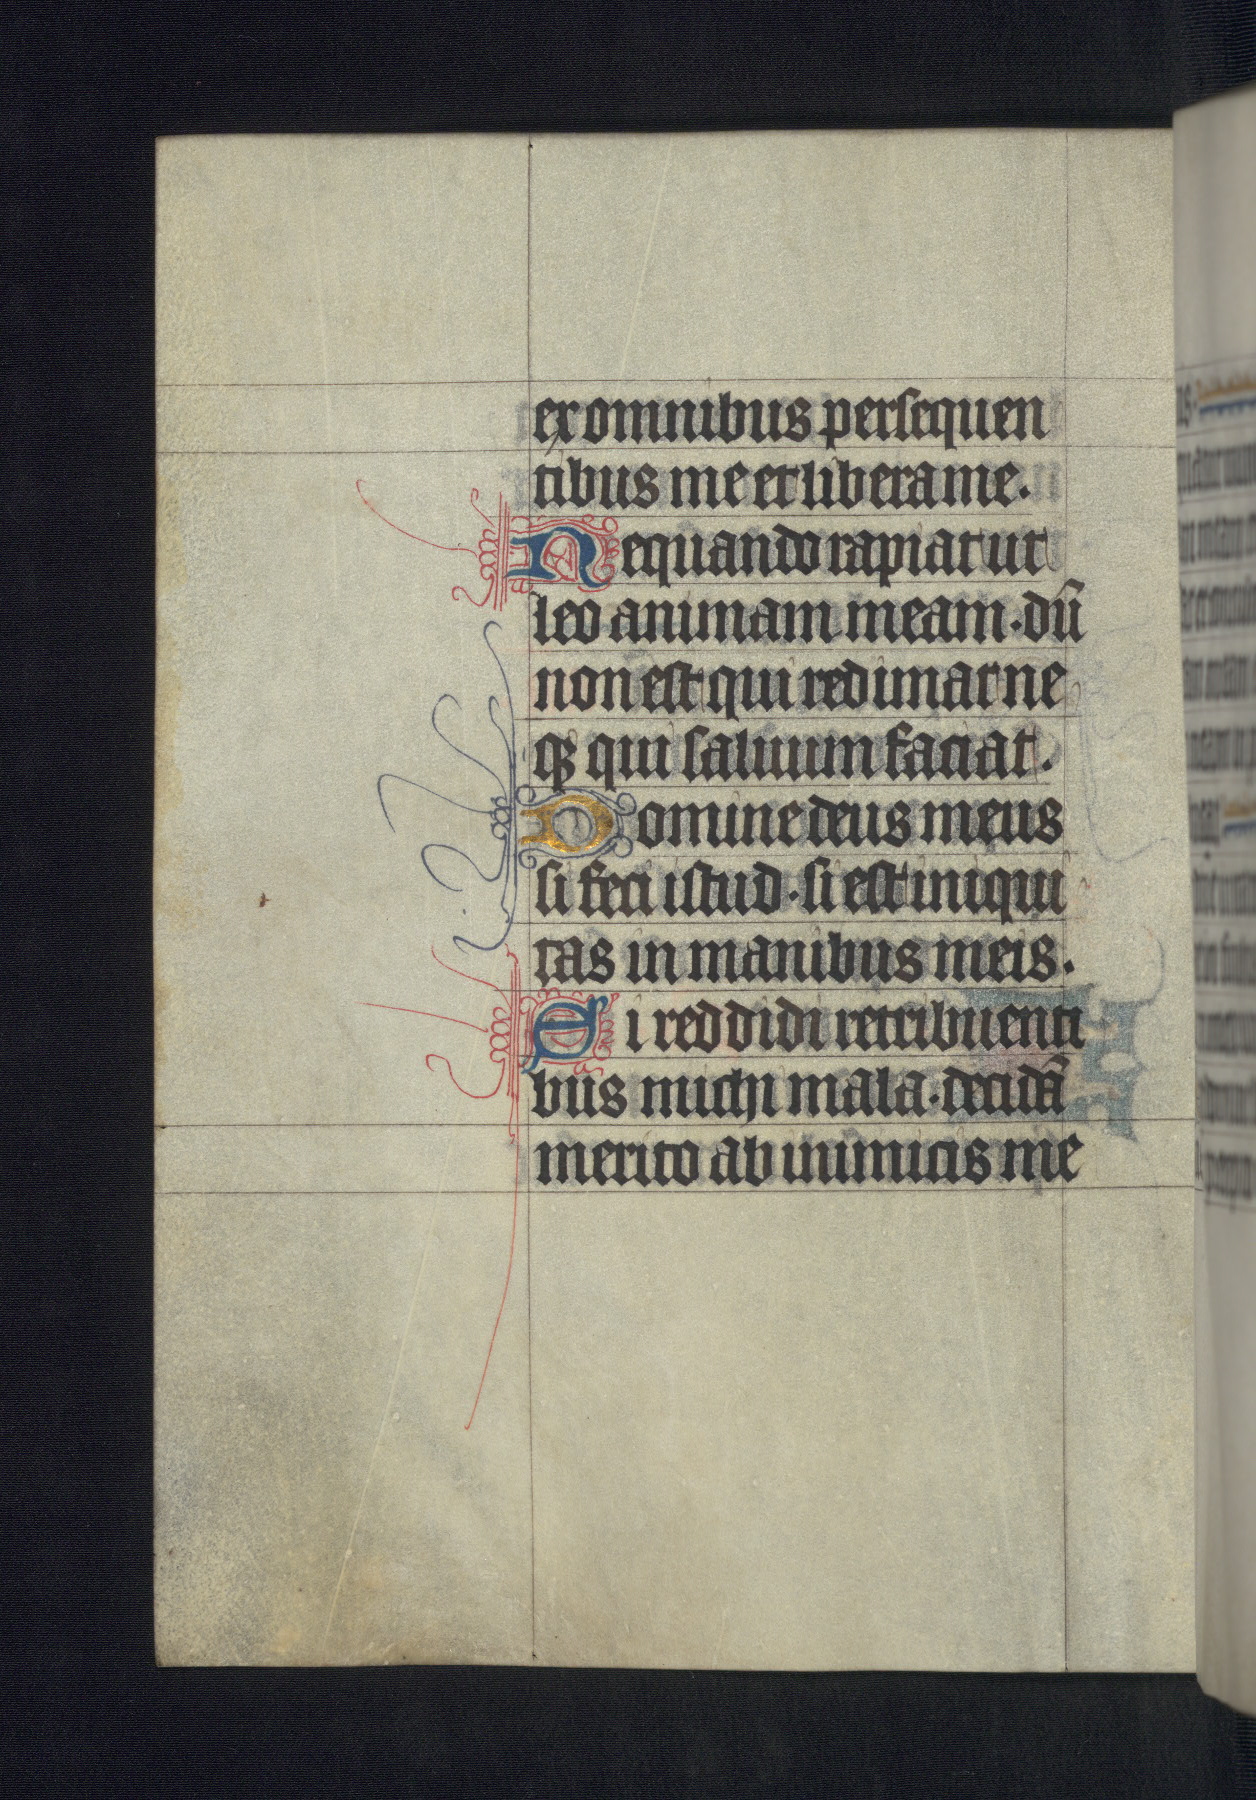 ex omnibus persequen
tibus me et libera me.
Nequando rapiat ut
leo animam meam. dū
non est qui redimat ne
qꝫ qui saluum faciat.
Domine deus meus
si feci istud. si est iniqui
tas in manibus meis.
Si reddidi retribuenti
bus michi mala. decidā
merito ab inimicis me